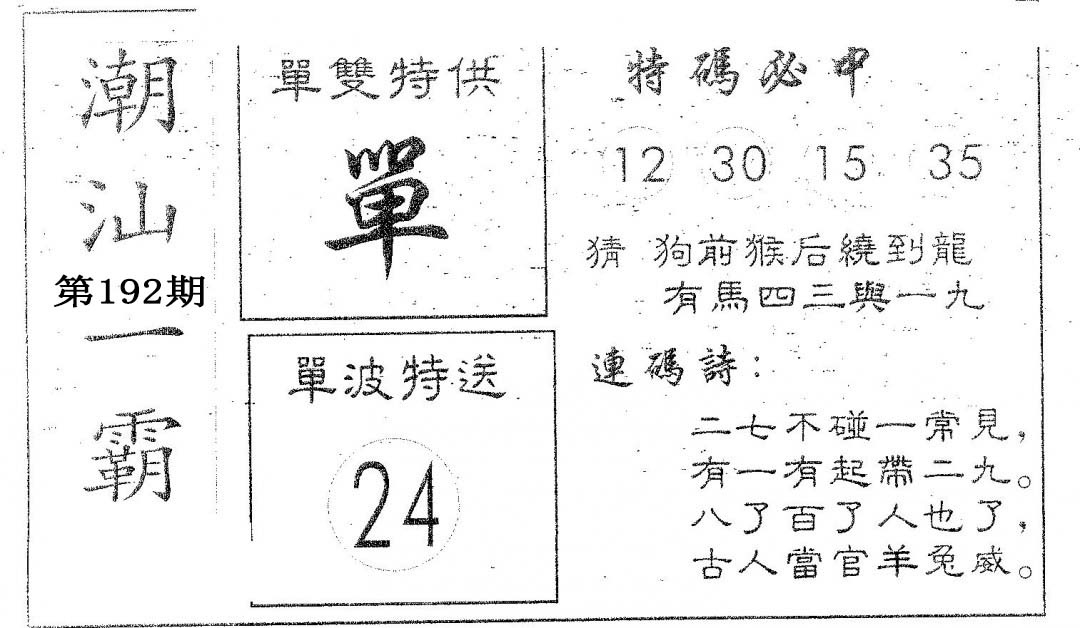 潮汕一霸
第192期
單雙特供
單
單波特送
24
特碼必中
12 30 15 35
猜 狗前猴后繞到龍
有馬四三與一九
連碼詩：
二七不碰一常見，
有一有起帶二九。
八了百了人也了，
古人當官羊兔威。